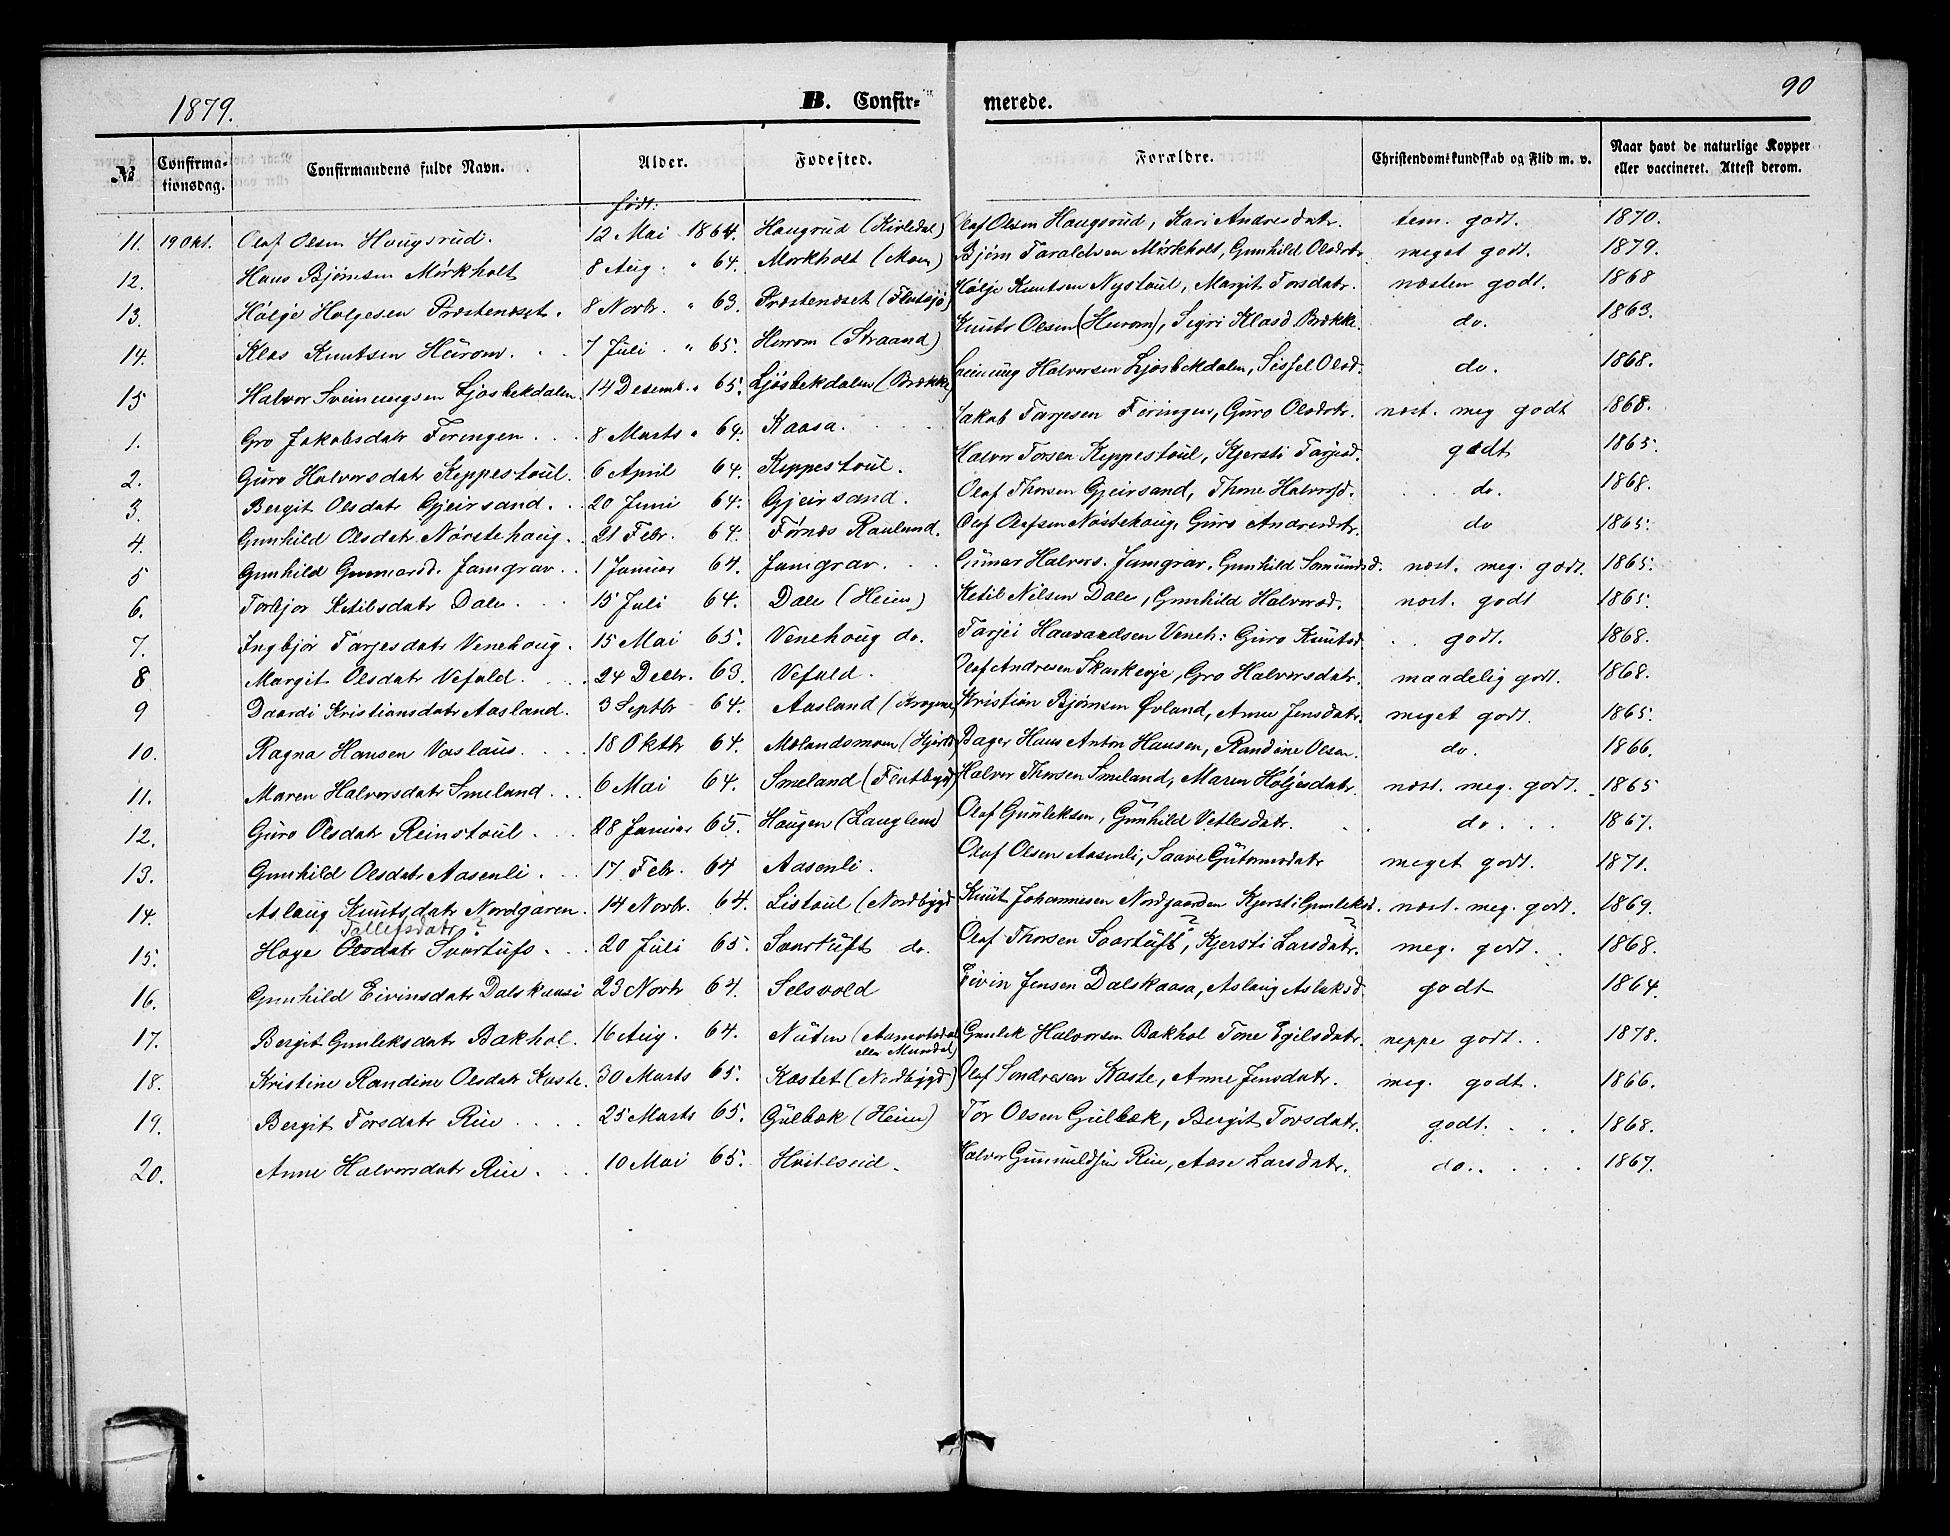 1879. B. Confir- merede. 90
№ Confirma-tionsdag. Confirmandens fulde Navn. Alder. Fodested. Forældre. Christendomskundskab og Flid m. v. Naar havt de naturlige Kopper eller vaccineret. Attest derom.
født:
11. 19 Okt. Olaf Olsen Hougsrud. 12 Mai 1864. Haugrud (Kirledal) Olaf Olsen Haugsrud, Kari Andresdatr. tem. godt. 1870.
12. Hans Bjørnsen Mørkholt 8 Aug. " 64. Mørkholt (Moen) Bjørn Taraldsen Mørkholt, Gunhild Olsdtr. meget godt. 1879.
13. Hølje Holjesen Præstenæset. 8 Novbr. " 63. Præstenæset (Flatsjø) Hølje Knutsen Nystoul, Margit Torsdatr. næsten godt. 1868
14. Klas Knutsen Hurom. 7 Juli. " 65. Hurom (Straand) Knutr Olsen (Hurom), Sigri Klasd Bække. do. 1863.
15 Halvor Sveinungsen Ljosbekdalen. 14 Desemb. " 65. Ljösbekdalen (Bække) Sveinung Halvorsen Ljosbekdalen, Sissel Olsd. do. 1868.
1. Gro Jakobsdatr Feringen. 8 Marts " 64. Kaasa. Jakob Tarjesen Føringen, Guro Olsdtr. næst. meg godt 1868.
2. Guro Halvorsdatr Keppestoul. 6 April 64. Keppestoul. Halvor Torsen Keppestoul, Kjersti Tarjesd. godt 1865.
3. Bergit Olsdatr Gjeirsand. 20 Juni 64. Gjeirsand. Olaf Thorsen Gjeirsand, Thone Halvorsd. do. 1868.
4. Gunhild Olsdatr Nørstehoug. 21 Febr. 64. Førnæs Raulund. Olaf Olafsen Nøstehoug, Guro Andresdtr. do 1865.
5 Gunhild Gunnarsd. Jamgrav. 1 Januar 64. Jamgrav. Gunar Halvors. Jamgrav, Gunhild Somundsd. næst. meg. godt. 1865.
6. Torbjor Ketilsdatr Dale. 15 Juli 64. Dale (Heim) Ketil Nilsen Dale, Gunhild Halvorsd. næst. godt 1865.
7. Ingbjør Tarjesdatr Venehoug. 15 Mai 65. Venehoug do. Tarjei Haavandsen Veneh: Guro Knutsd. godt. 1868.
8 Margit Olsdatr Vefald. 24 Decbr. 63. Vefald. Olaf Andresen Skarkeoje, Gro Halvorsdatr. maadelig godt. 1868.
9 Daardi Kristiansdatr Aasland. 3 Septbr 64. Aasland Kristian Bjørnsen Øvland, Anne Jensdatr. meget godt. 1865.
10. Ragna Hansen Vaslaus. 18 Oktbr 64. Mælandsmoen (Hjartd) Bager Hans Anton Hansen, Randine Olsen. do. 1866.
11. Maren Halvorsdatr Smeland. 6 Mai 64. Smeland (Flatbygd) Halvor Thorsen Smeland, Maren Høljesdatr. næst. meg. godt. 1865
12. Guro Olsdatr Reinstoul. 28 Januar 65. Haugen (Lauglem) Olaf Gunleksen, Gunhild Vetlesdatr. do. 1867.
13. Gunhild Olsdatr Aasenli. 17 Febr. 64 Aasenli. Olaf Olsen Aasenli, Saave Gutormsdatr meget godt. 1871.
14. Aslaug Knutsdatr Nordgaren. 14 Novbr. 64. Listoul (Nordbygd Knut Johannesen Nordgaarden Kjersti Gunleksd. næst. meg. godt. 1869.
Tallefsdatr ? ? ?
15. Hæge Olsdatr Svartufs. 20 Juli 65. Svartuft do. Olaf Thorsen Svartuft, Kjersti Larsdatr. meg. godt. 1868.
16. Gunhild Eivinsdatr Dalskaasi 23 Novbr 64. Selsvold Eivin Jensen Dalskaasa, Aslaug Aslaksd. godt 1864.
17. Bergit Gunleksdatr Bakhol. 16 Aug. 64. Nuten (Aamotsdal eller Mundal) Gunlek Halvorsen Bakhol Tone Egilsdatr. neppe godt. 1878.
18. Kristine Randine Olsdatr Kaste. 30 Marts 65. Kastet (Nordbygd) Olaf Sondresen Kaste, Anne Jensdatr. meg. godt. 1866.
19. Bergit Torsdatr Rue 25 Marts 65. Gulbæk (Heim) Tor Olsen Gulbæk, Bergit Tovsdatr. godt. 1868.
20. Anne Halvorsdatr Rue. 10 Mai 65. Hviteseid. Halvor Gunnuldsen Rue, Aase Larsdatr. do. 1867.